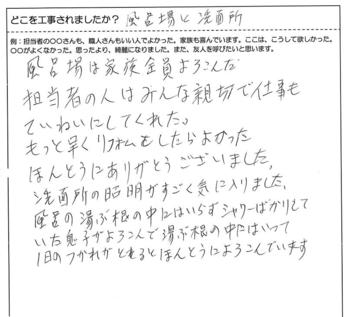 どこを工事されましたか？ 風呂場と洗面所
例：担当者の○○さんも、職人さんもいい人でよかった。家族も喜んでいます。ここは、こうして欲しかった。
○○がよくなかった。思ったより、綺麗になりました。また、友人を呼びたいと思います。
風呂場は家族全員よろこんだ
担当者の人はみんな親切で仕事も
ていねいにしてくれた。
もっと早くリフォムをしたらよかった
ほんとうにありがとうございました。
洗面所の昭明がすごく気に入りました。
風呂の湯ぶ根の中にはいらずシャワーばかりして
いた息子がよろこんで湯ぶ根の中にはいって
1日のつかれがとれるとほんとうによろこんでいます